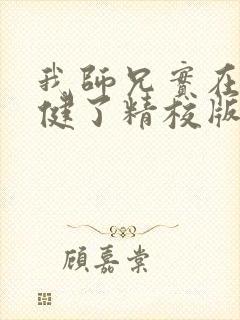 我師兄實在
健了精校版
顧嘉棠